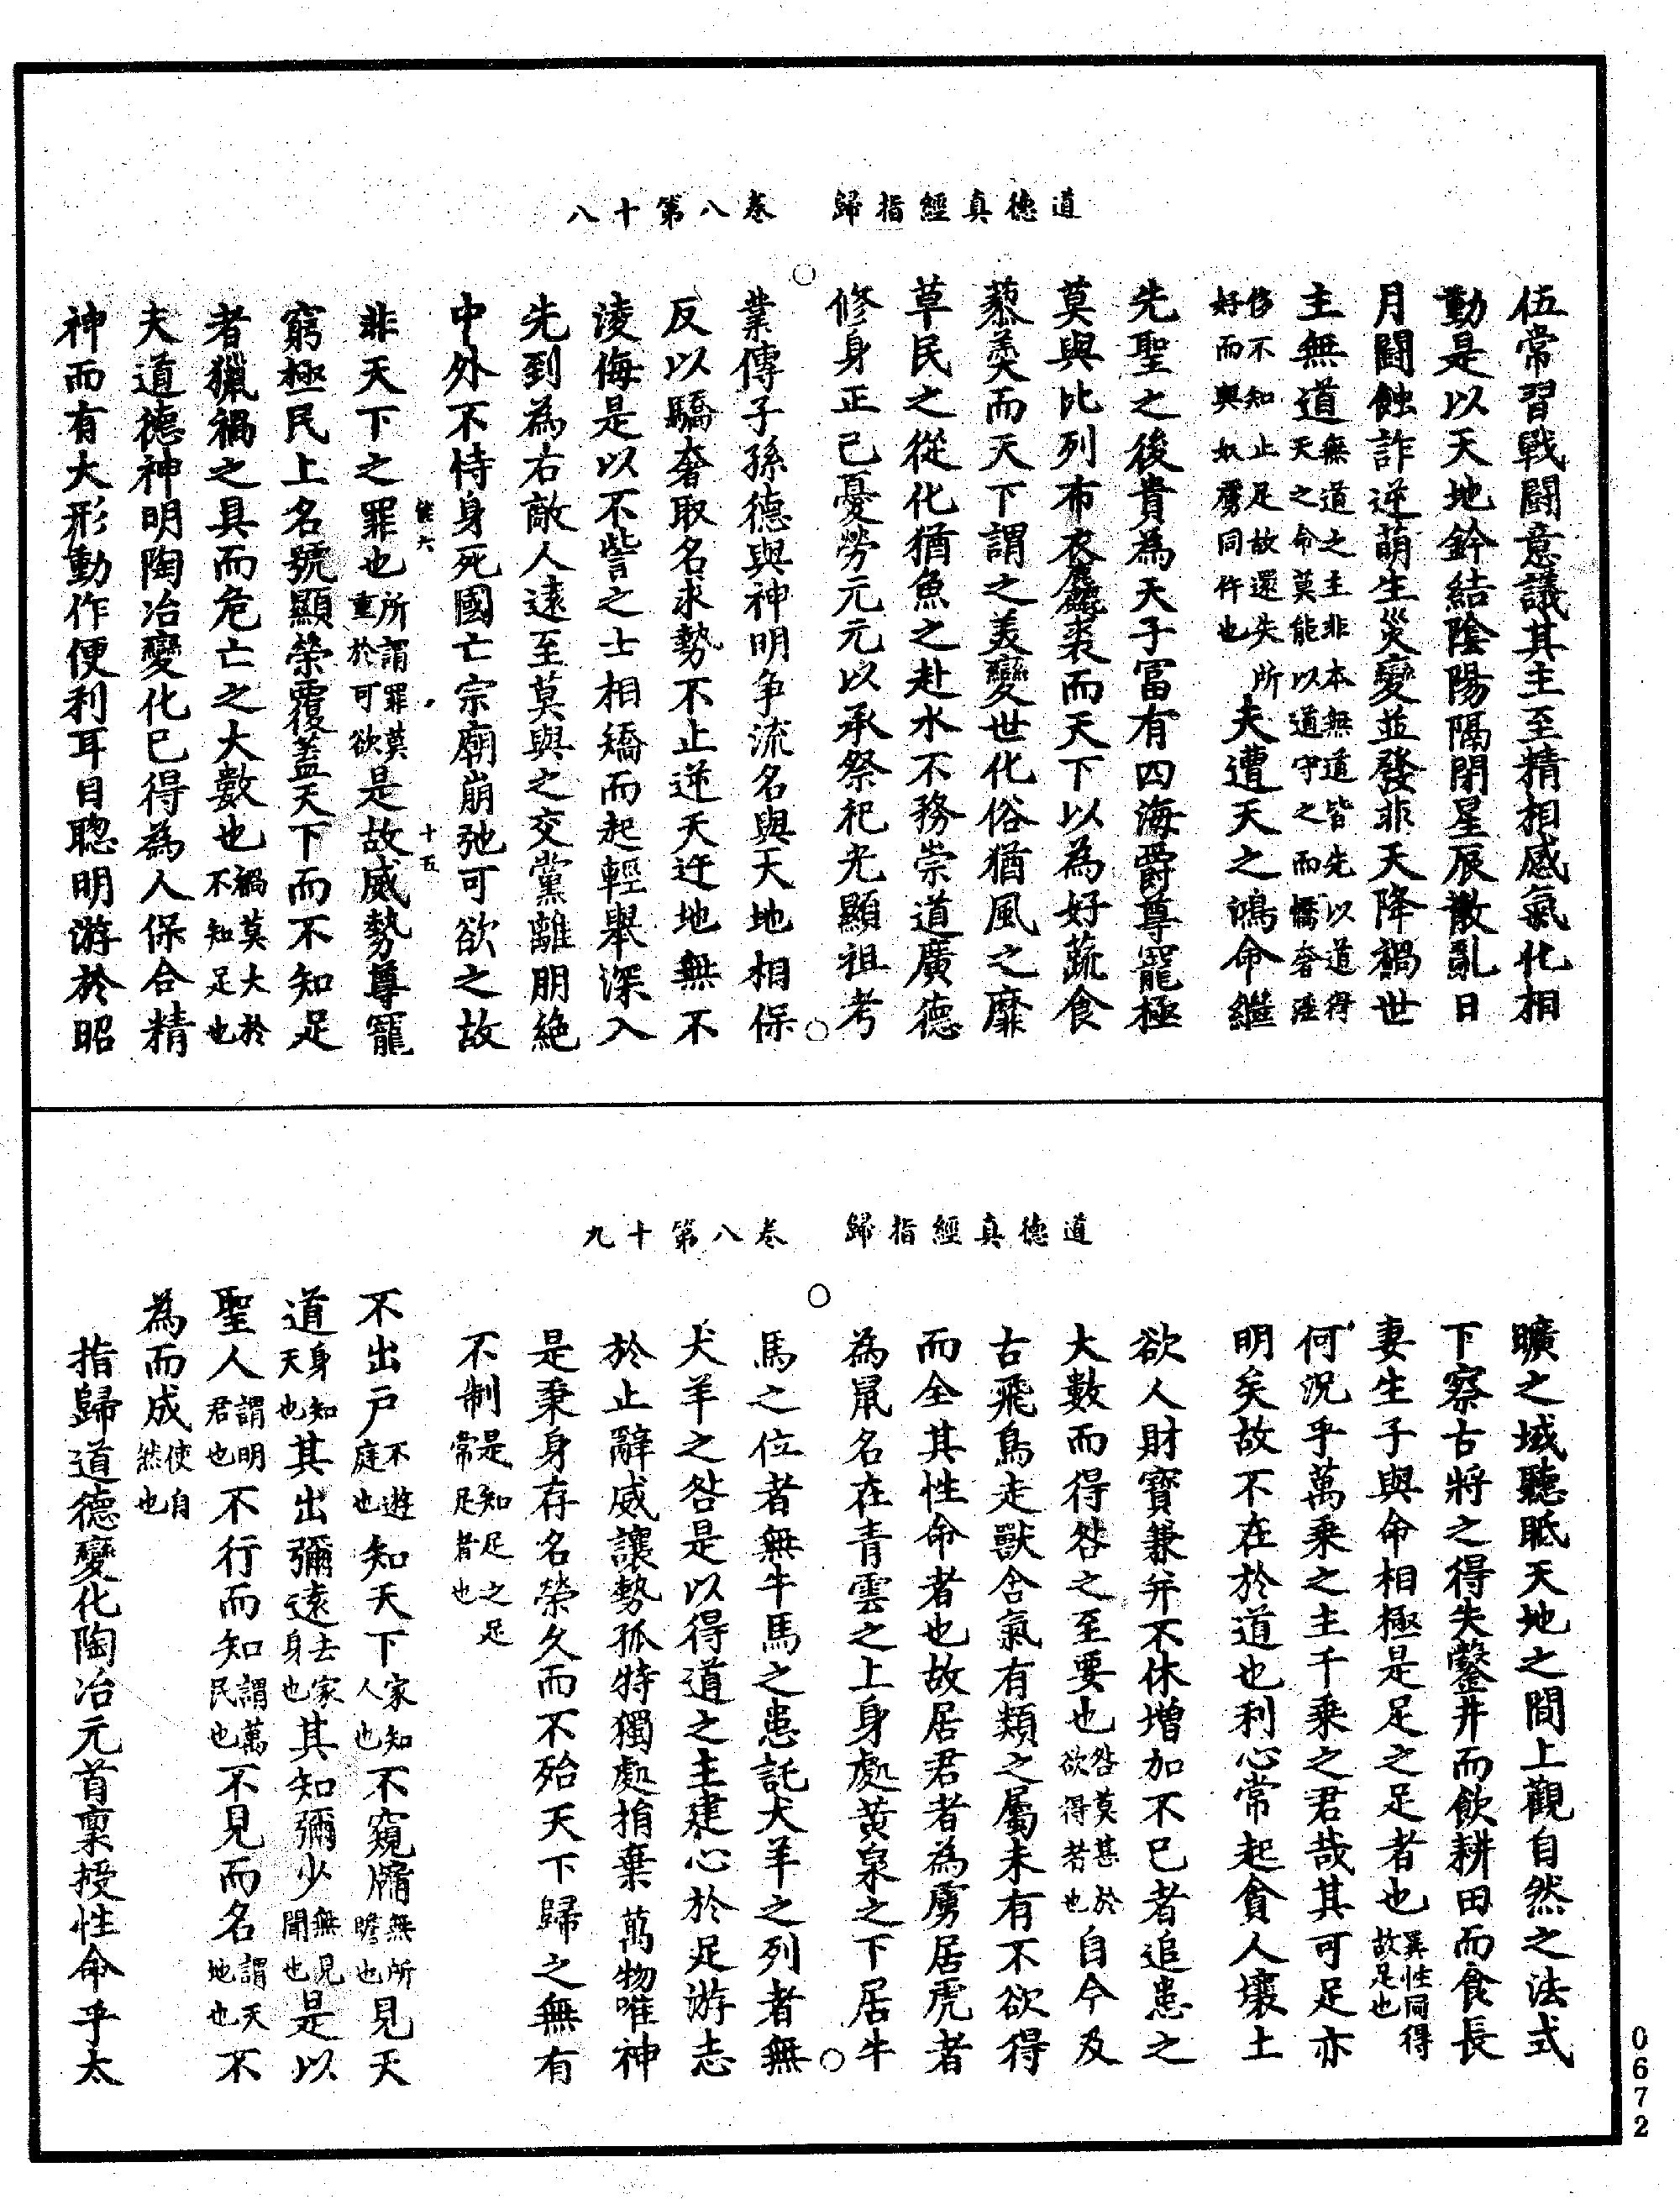 道德真經指歸　卷八第十八
伍常習戰鬪意議其主至精相感氣化相
動是以天地鈐結陰陽隔閉星辰散亂日
月鬪蝕詐逆萌生災變並發非天降禍世
主無道無道之主非本無道皆先以道得天之命莫能以道守之而憍奢淫
侈不知止足故還失所好而與奴虜同忤也夫遭天之鴻命繼
先聖之後貴為天子富有四海爵尊寵極
莫與比列布衣麤裘而天下以為好蔬食
藜羹而天下謂之美變世化俗猶風之靡
草民之從化猶魚之赴水不務崇道廣德
修身正己憂勞元元以承祭祀光顯祖考
業傳子孫德與神明争流名與天地相保
反以驕奢取名求勢不止逆天迕地無不
淩侮是以不訾之士相矯而起輕舉深入
先到為右敵人遠至莫與之交黨離朋絶
中外不恃身死國亡宗廟崩弛可欲之故
能六　十五
非天下之罪也所謂罪莫重於可欲是故威勢尊寵
窮極民上名號顯榮覆蓋天下而不知足
者獵禍之具而危亡之大數也禍莫大於不知足也
夫道德神明陶冶變化已得為人保合精
神而有大形動作便利耳目聰明游於昭
道德真經指歸　卷八第十九
曠之域聽眡天地之間上觀自然之法式
下察古將之得失鑿井而飲耕田而食長
妻生子與命相極是足之足者也異性同得故足也
何況乎萬乘之主千乘之君哉其可足亦
明矣故不在於道也利心常起貪人壤土
欲人財寶兼并不休增加不已者追患之
大數而得咎之至要也咎莫甚於欲得者也自今及
古飛鳥走獸含氣有類之屬未有不欲得
而全其性命者也故居君者為虜居虎者
為鼠名在青雲之上身處黄泉之下居牛
馬之位者無牛馬之患託犬羊之列者無
犬羊之咎是以得道之主建心於足游志
於止辭威讓勢孤特獨處捐棄萬物唯神
是秉身存名榮久而不殆天下歸之無有
不制是知足之足常足者也
不出戶不遊庭也知天下家知人也不窺牖無所瞻也見天
道身知天也其出彌遠去家身也其知彌少無見聞也是以
聖人謂明君也不行而知謂萬民也不見而名謂天地也不
為而成使自然也
指歸道德變化陶冶元首稟授性命乎太
0672